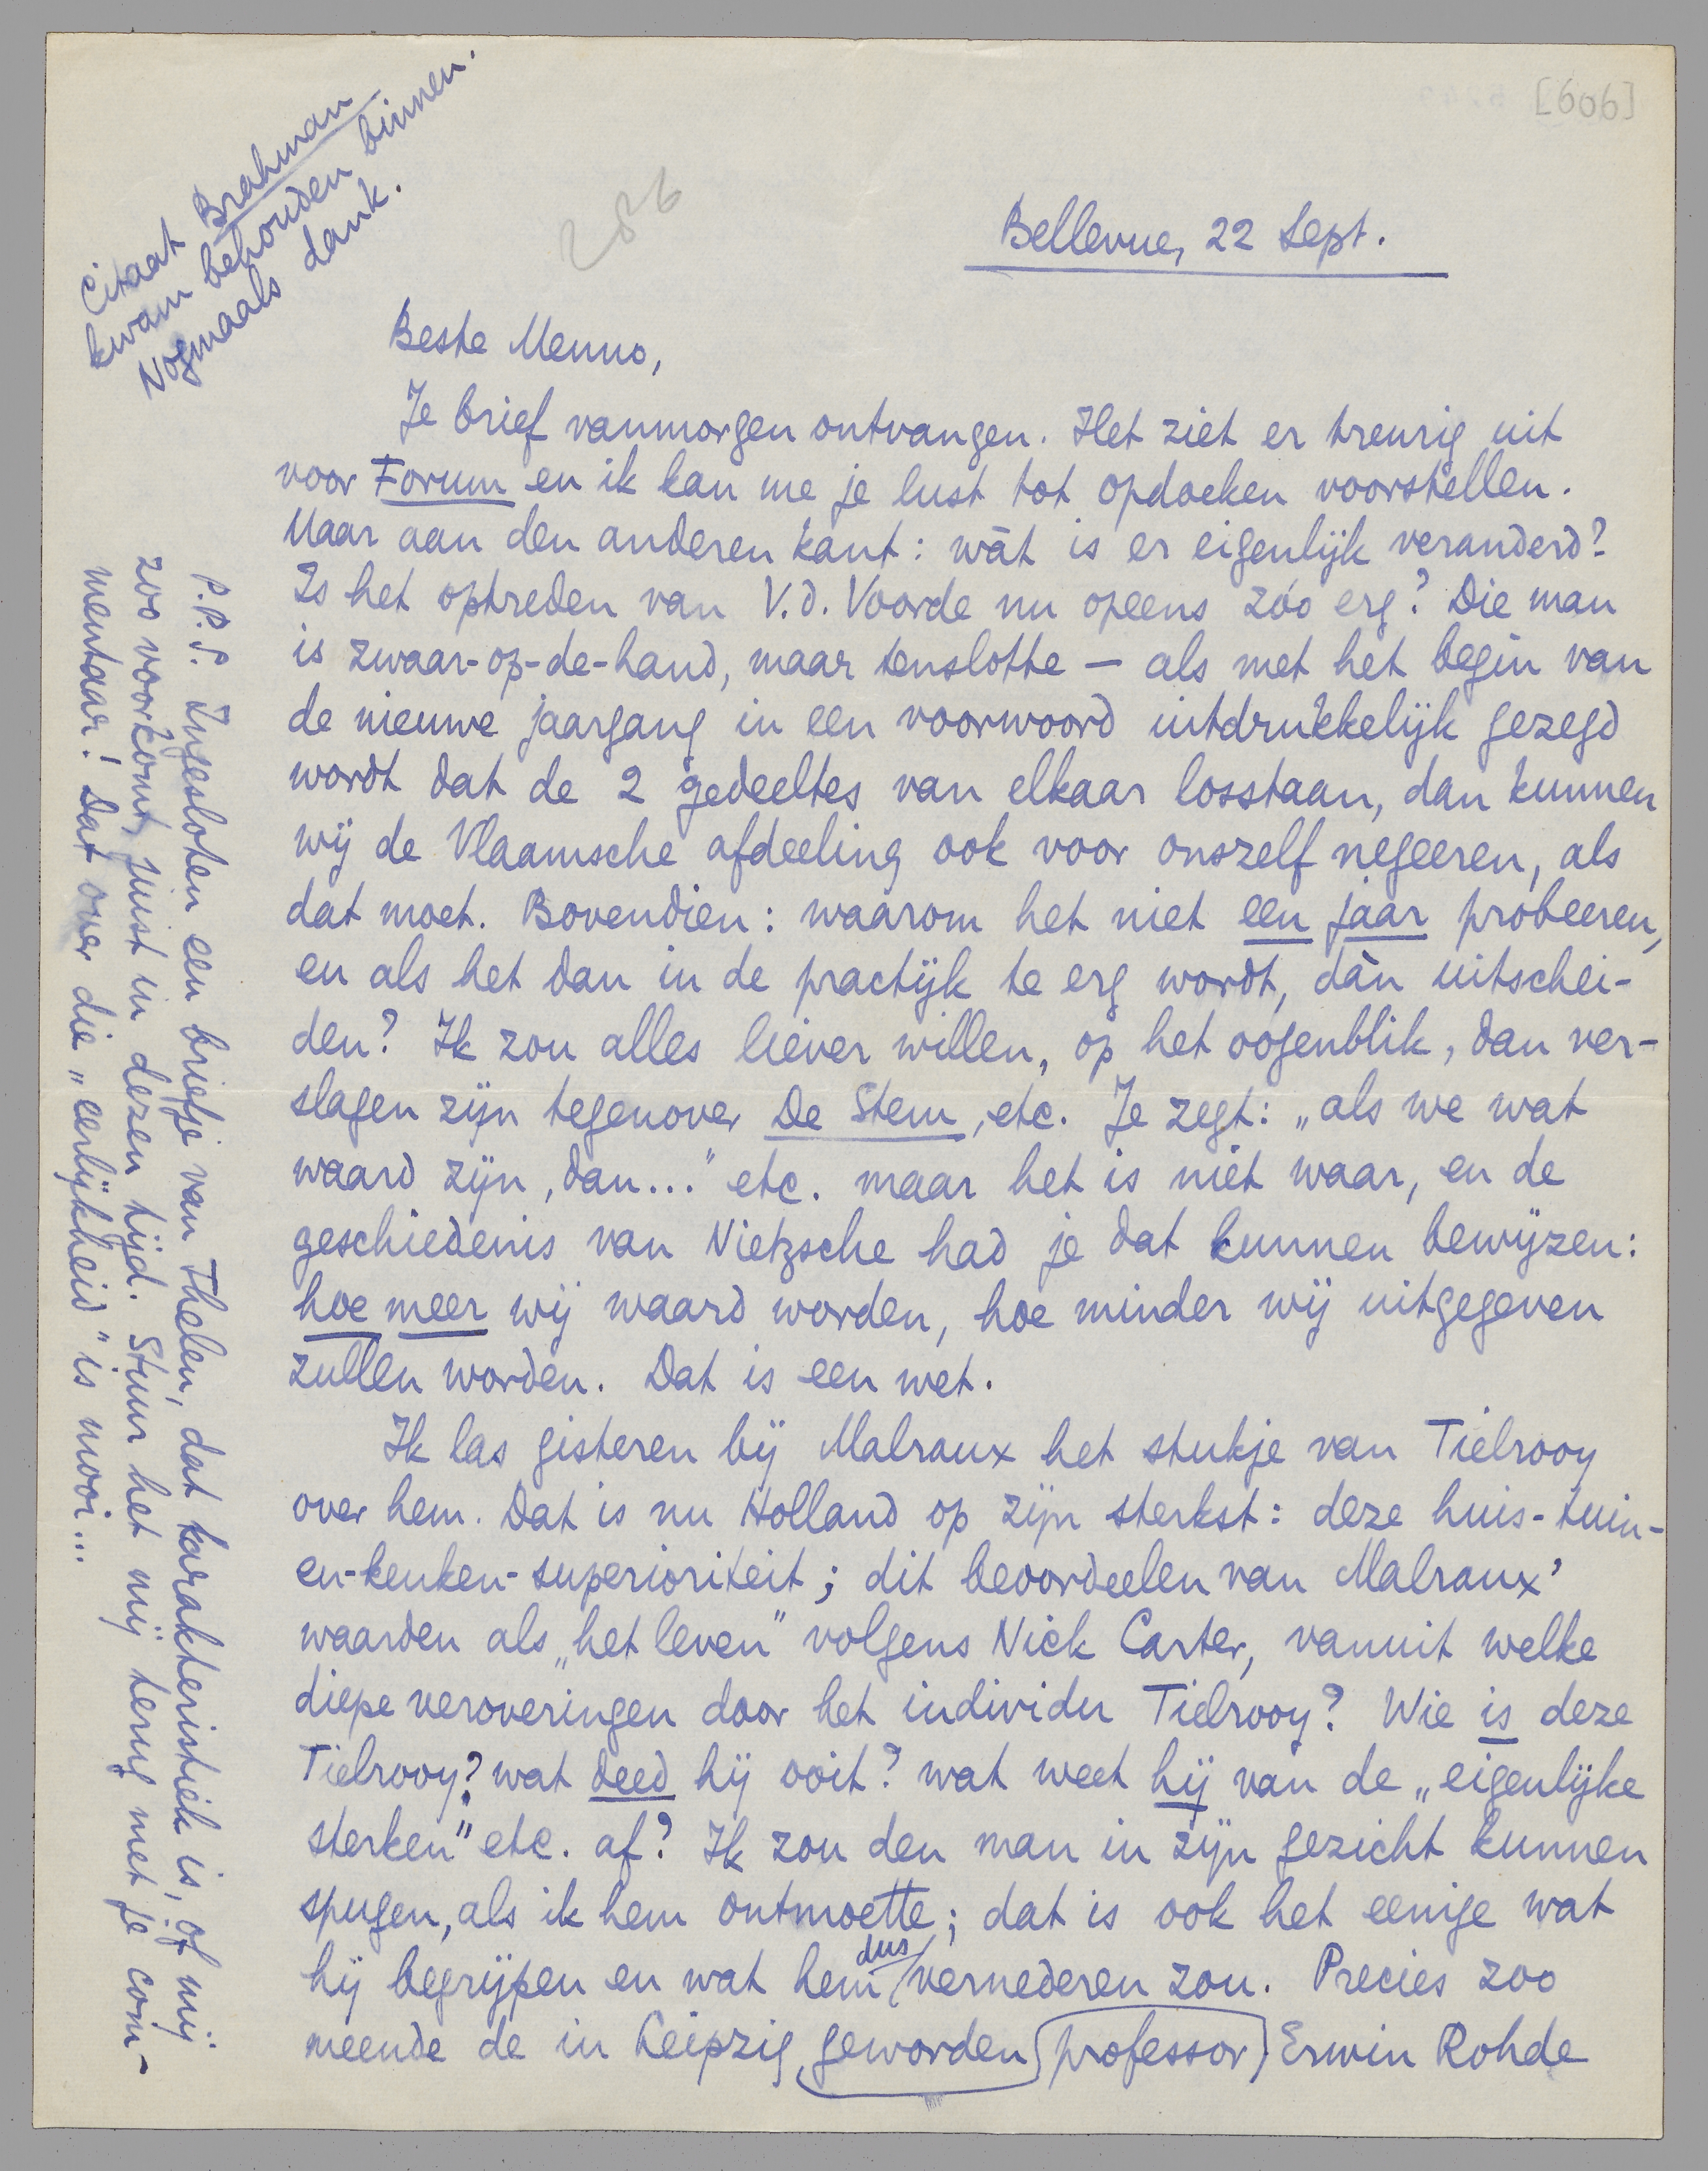 [606]
286
Citaat Brahman
kwam behouden binnen.
Nogmaals dank.
Bellevue, 22 Sept.
Beste Menno,
Je brief vanmorgen ontvangen. Het ziet er treurig uit
voor Forum en ik kan me je lust tot opdoeken voorstellen.
Maar aan den anderen kant: wàt is er eigenlijk veranderd?
Is het optreden van V.d. Voorde nu opeens zóo erg? Die man
is zwaar-op-de-hand, maar tenslotte — als met het begin van
de nieuwe jaargang in een voorwoord uitdrukkelijk gezegd
wordt dat de 2 gedeeltes van elkaar losstaan, dan kunnen
wij de Vlaamsche afdeeling ook voor onszelf negeeren, als
dat moet. Bovendien: waarom het niet een jaar probeeren,
en als het dan in de practijk te erg wordt, dàn uitschei-
den? Ik zou alles liever willen, op het oogenblik, dan ver-
slagen zijn tegenover De Stem, etc. Je zegt: „als we wat
waard zijn, dan..." etc. maar het is niet waar, en de
geschiedenis van Nietzsche had je dat kunnen bewijzen:
hoe meer wij waard worden, hoe minder wij uitgegeven
zullen worden. Dat is een wet.
Ik las gisteren bij Malraux het stukje van Tielrooy
over hem. Dat is nu Holland op zijn sterkst: deze huis-tuin-
en-keuken-superioriteit; dit beoordeelen van Malraux'
waarden als „het leven" volgens Nick Carter, vanuit welke
diepe veroveringen door het individu Tielrooy? Wie is deze
Tielrooy? wat deed hij ooit? wat weet hij van de „eigenlijke
sterken" etc. af? Ik zou den man in zijn gezicht kunnen
spugen, als ik hem ontmoette; dat is ook het eenige wat
hij begrijpen en wat hem dus vernederen zou. Precies zoo
meende de in Leipzig geworden professor Erwin Rohde
P.P.S. Ingesloten een briefje van Thelen, dat karakteristiek is, of mij
zoo voorkomt, juist in dezen tijd. Stuur het mij terug met je com-
mentaar! Dat over die „eerlijkheid" is mooi...